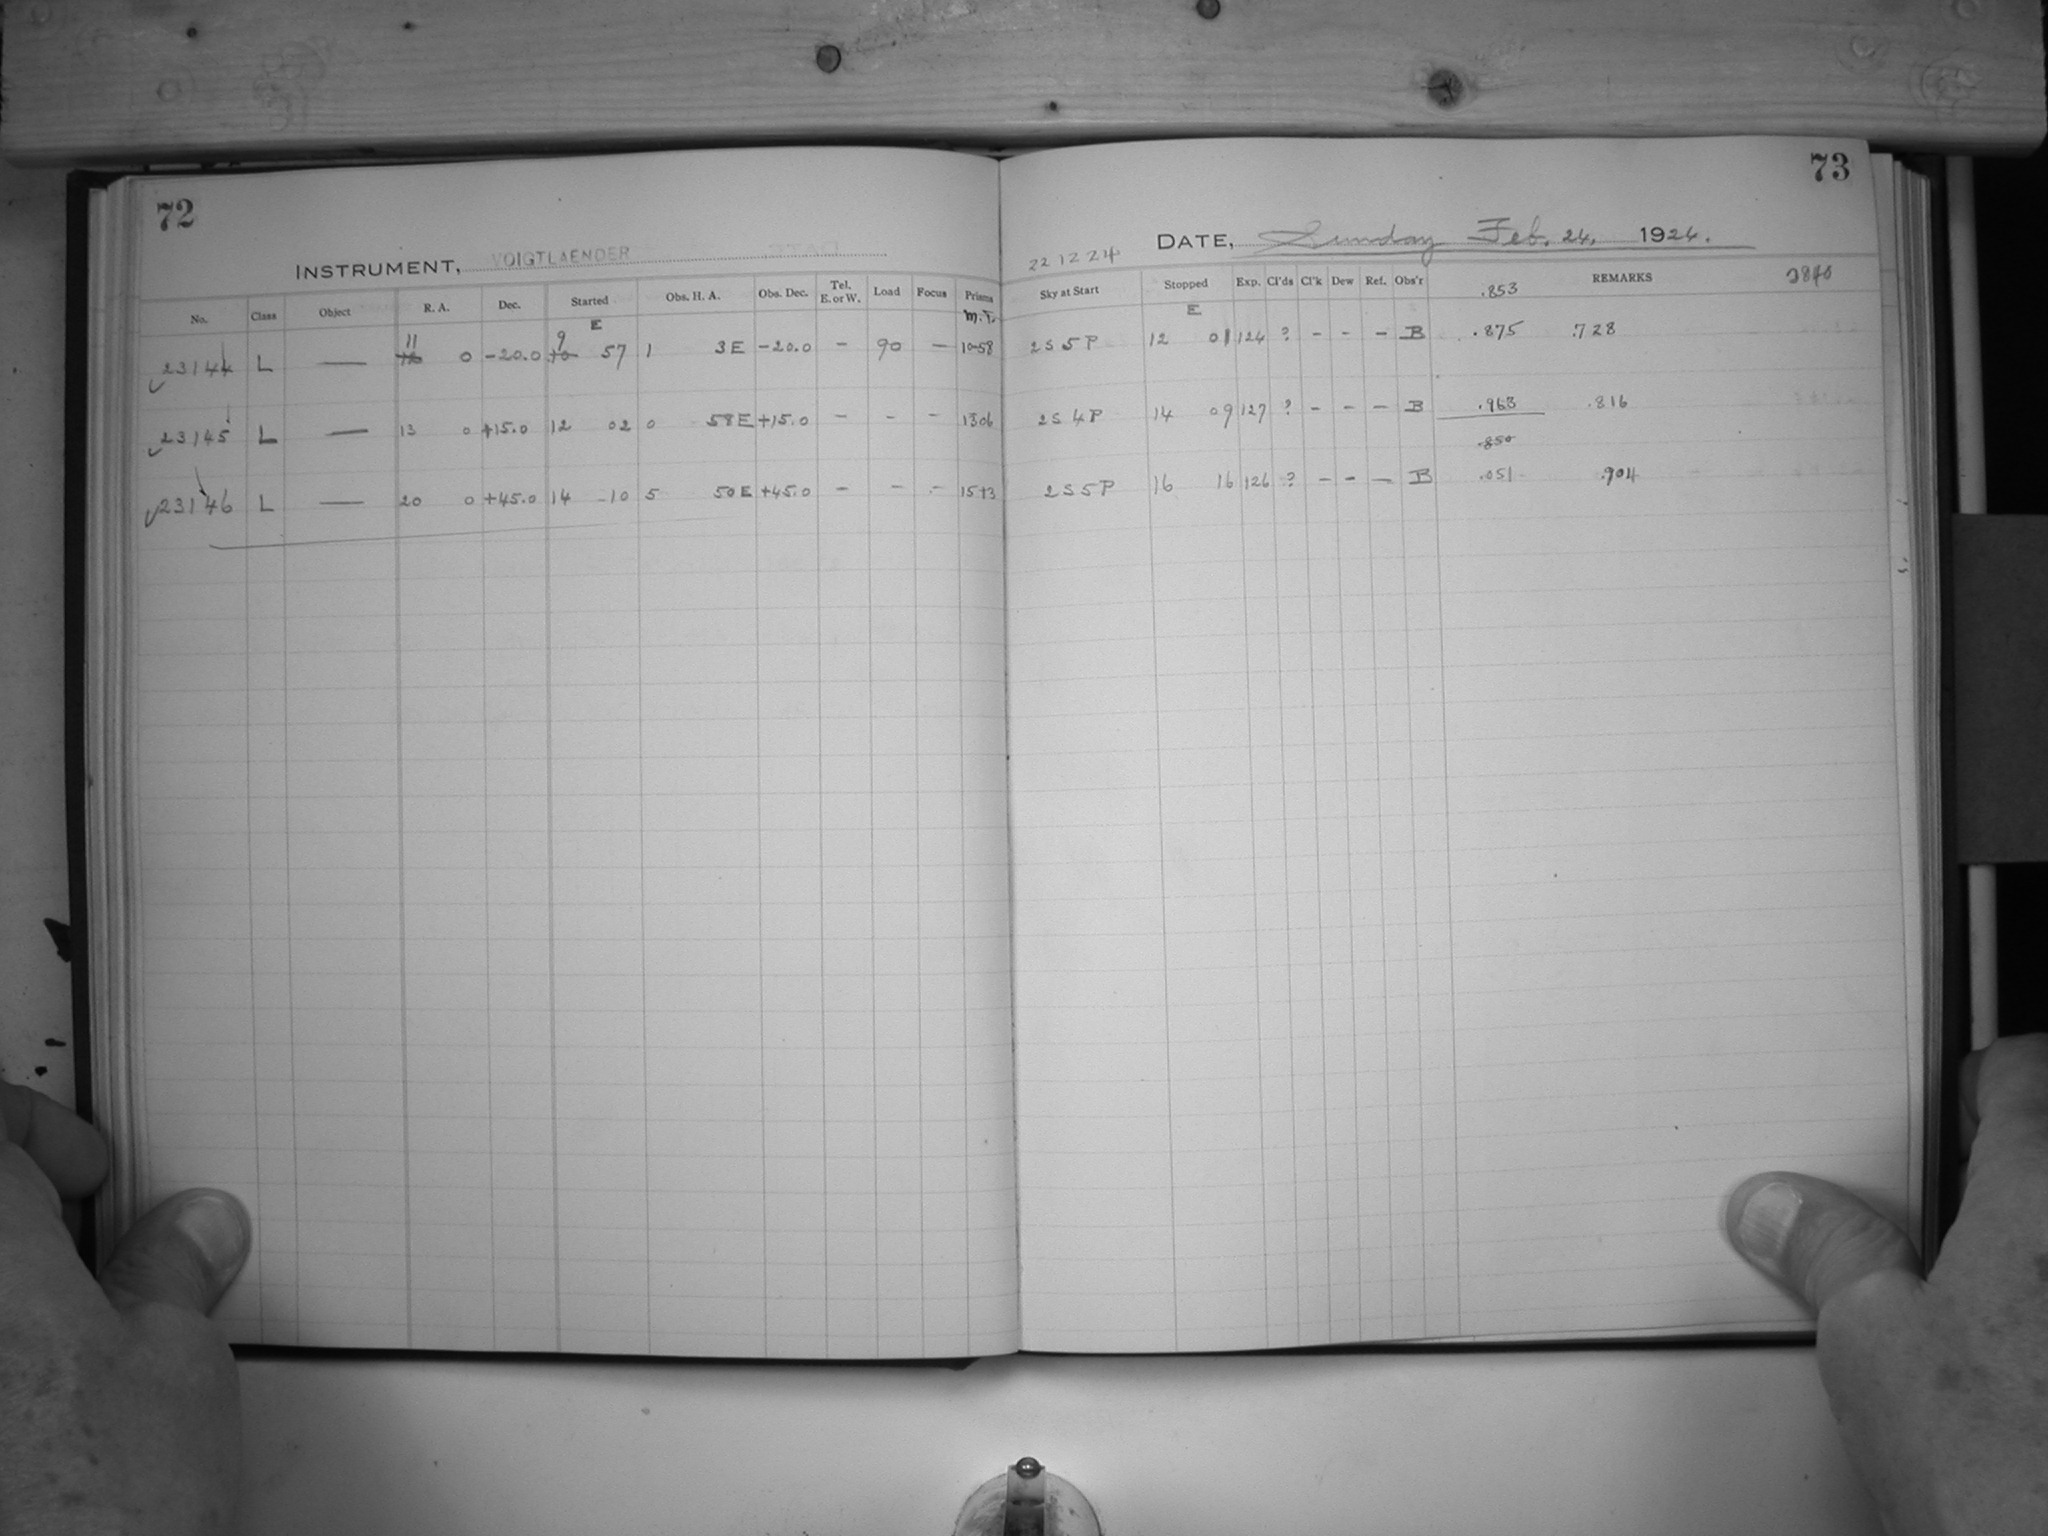 72
INSTRUMENT, VOIGTLAENDER
No. Class Object R. A. Dec. Started Obs. H. A. Obs. Dec. Tel. E. or W. Load Focus Prisms
E M.T.
11 9
23144 L — 12 0 -20.0 10 57 1 3E -20.0 - 90 - 10 58
23145 L — 13 0 +15.0 12 02 0 58E +15.0 - - - 13 06
23146 L — 20 0 +45.0 14 10 5 50E +45.0 - - - 15 13
73
DATE, Sunday Feb. 24, 1924.
22 12 24
Sky at Start Stopped Exp. Cl'ds Cl'k Dew Ref. Obs'r REMARKS
.853
E
2 S 5 P 12 01 124 ? - - - B .875 .728
2 S 4 P 14 09 127 ? - - - B .963 .816
.850
2 S 5 P 16 16 126 ? - - - B .051 .904